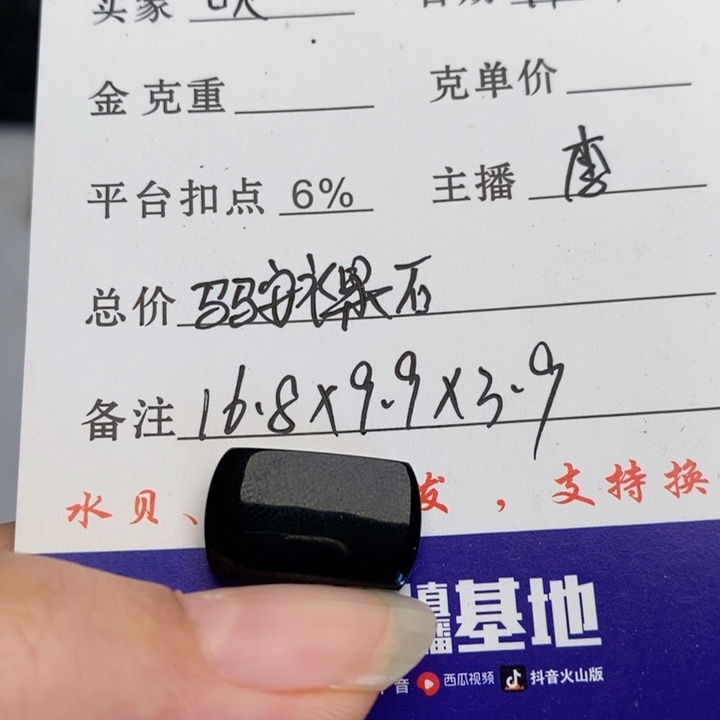 买家
金克重 克单价
平台扣点 6% 主播 李
总价
石
备注 16.8×9.9×3.9
水贝、 发，支持换
直播基地
音 西瓜视频 抖音火山版